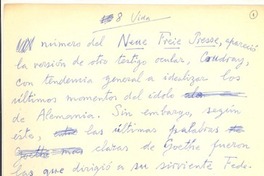 8 Vida
1
número del Neue Freie Presse, apareció
la versión de otro testigo ocular, Coudray,
con tendencia general a idealizar los
últimos momentos del ídolo
de Alemania. Sin embargo, según
éste, las últimas palabras
claras de Goethe fueron
las que dirigió a su sirviente Fede-